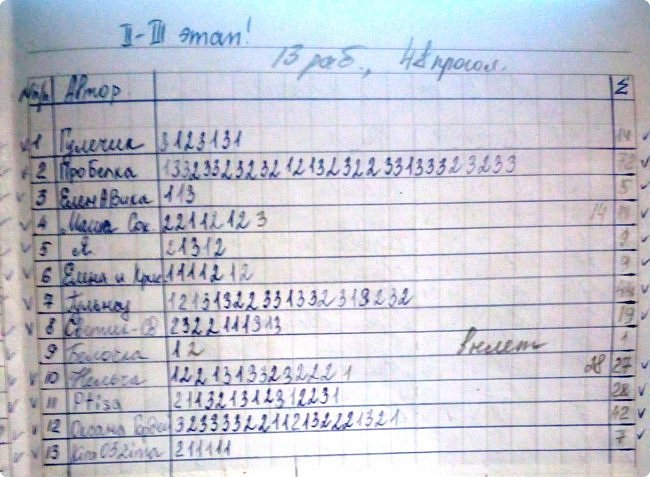 II-III этап!
13 раб., 48 прогол.
№п/п Автор Σ
1 Гулечик 3123131 14
2 ПроБелка 1332332323212132322331333233233 72
3 ЕленАВика 113 5
4 Маша Сок. 22112123 14
5 Я. 21312 9
6 Елена и Крис 1111212 9
7 Гульнау 12131322331332318232
8 Светик 2322111313 19
9 Белочка 12 вылет 1
10 Нелька 12213133232221 28 27
11 Ptisa 211321312312231 28
12 Оксана 323333221121322213 21 42
13 Kira032ima 211111 7